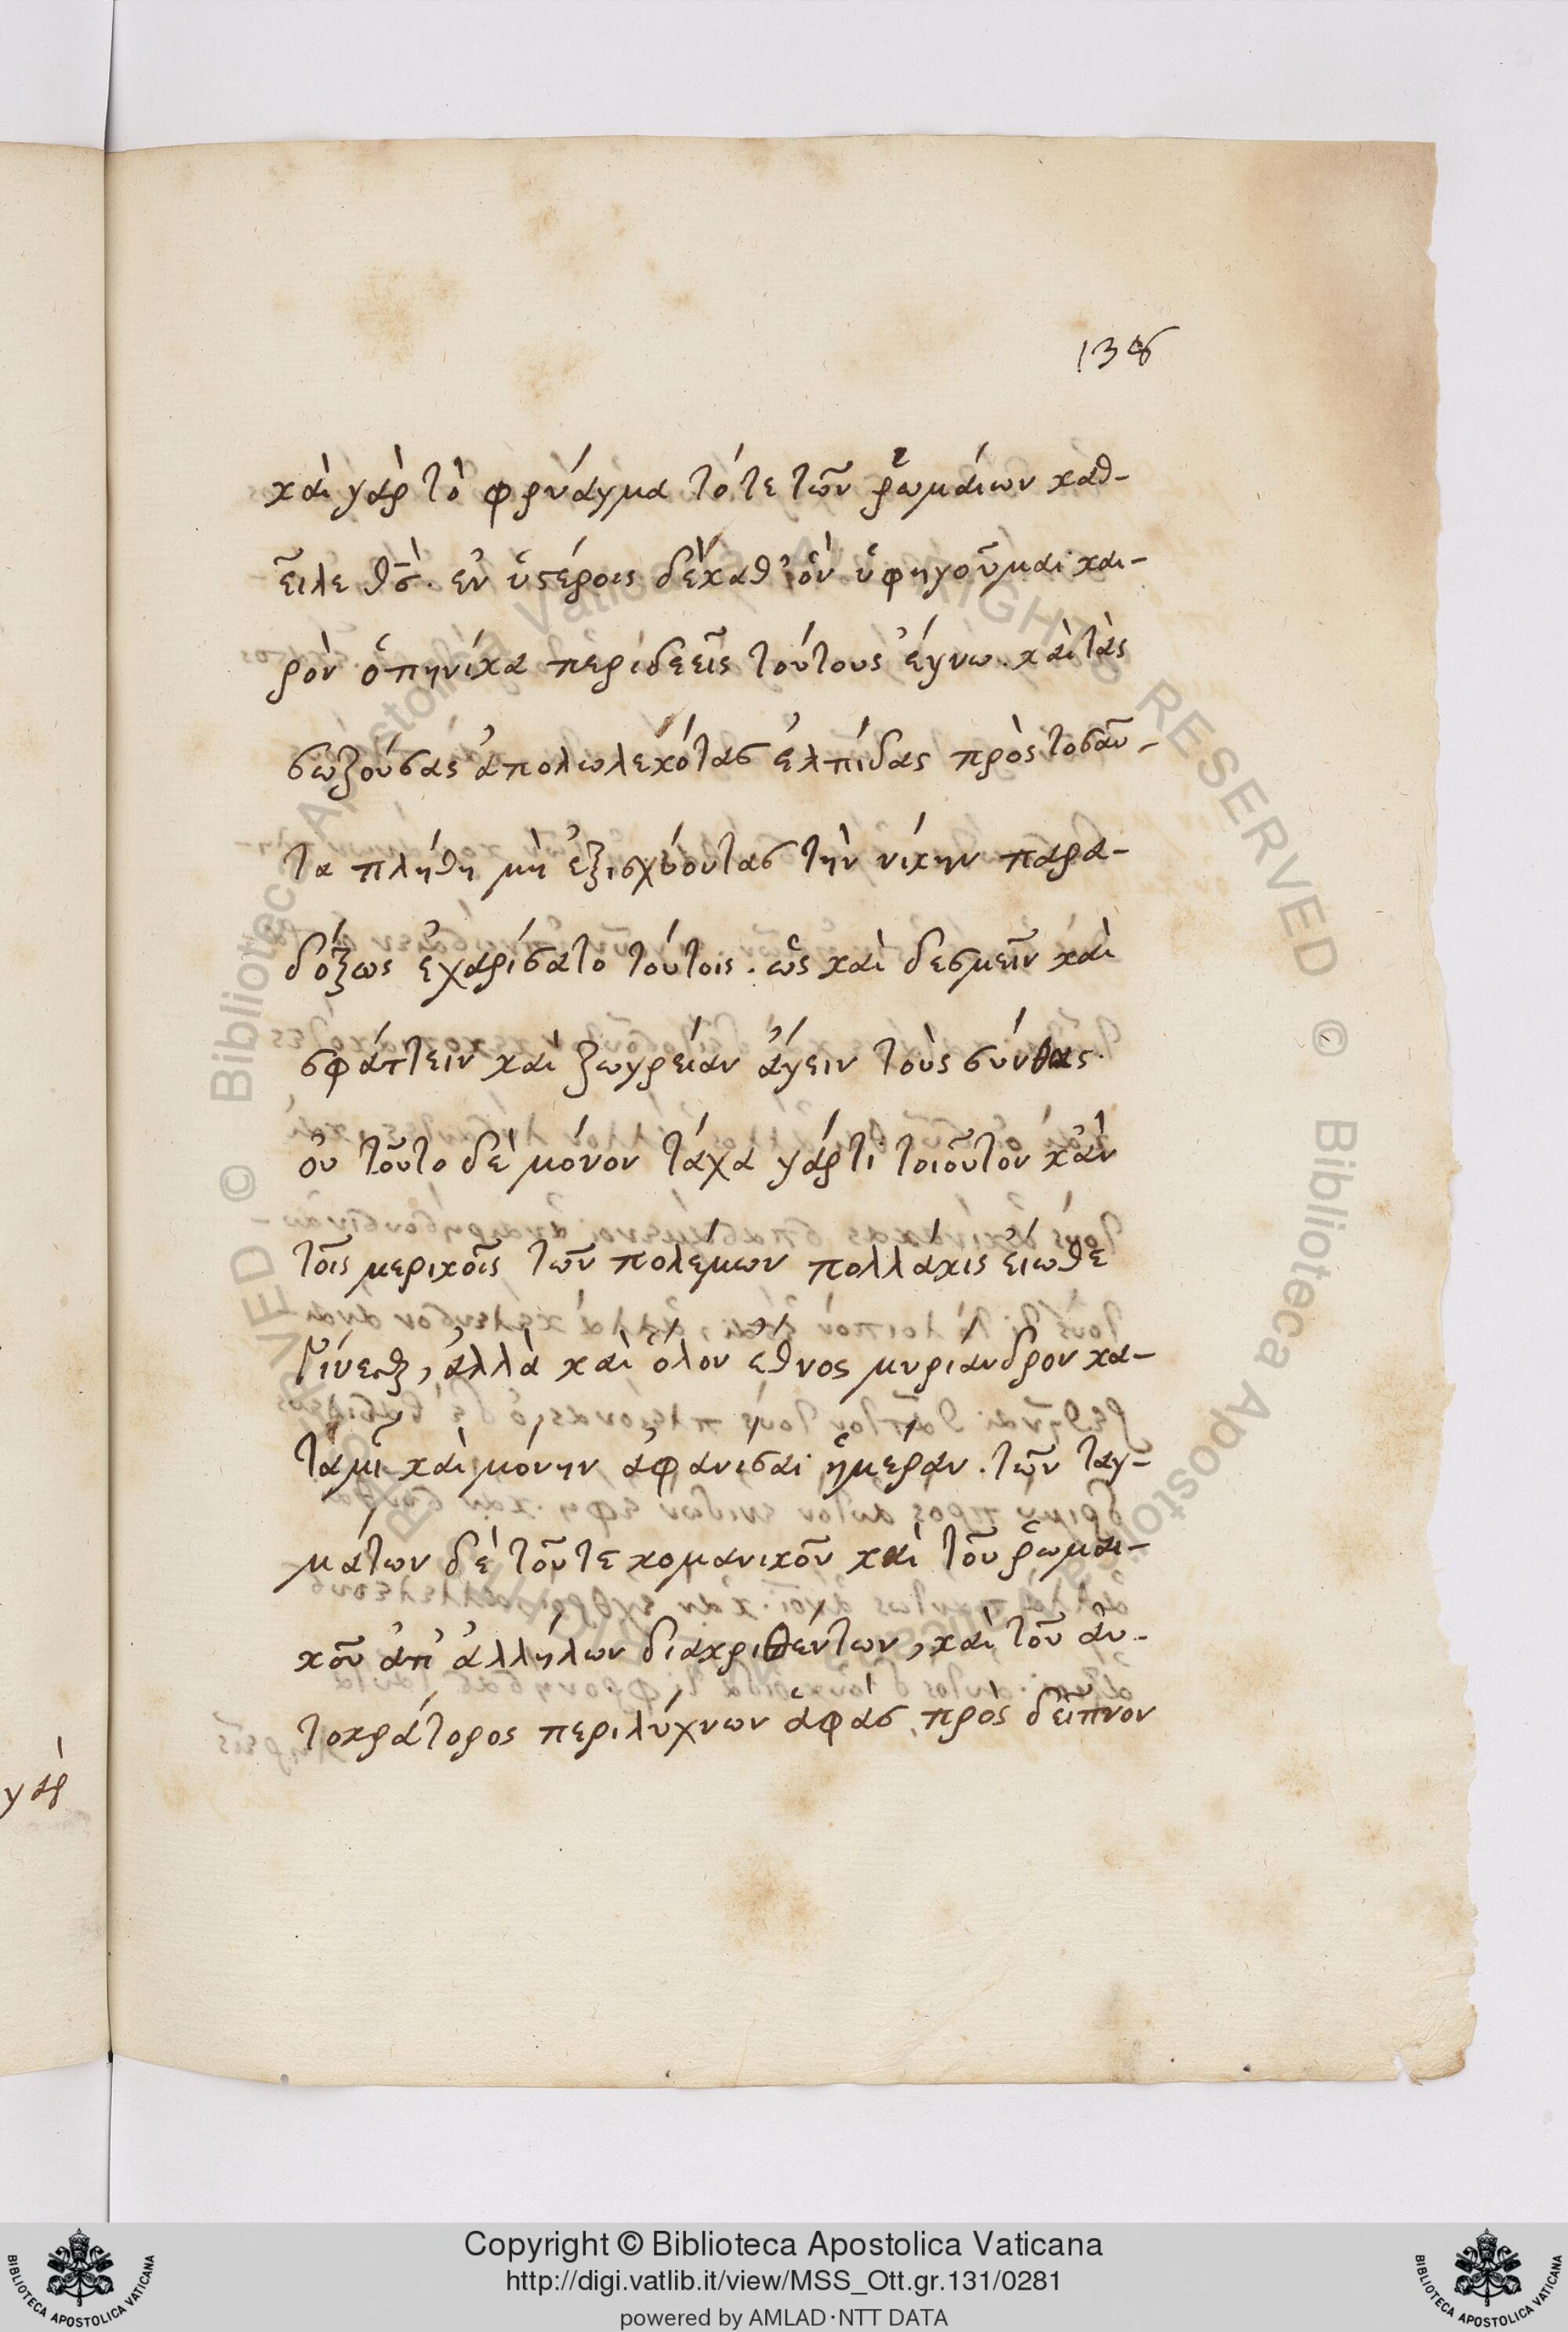 138
καὶ γὰρ τὸ φρύαγμα τότε τῶν ῥωμαίων καθ-
εῖλε θς̅. ἐν ὑστέροις δὲ καθ' ὃν ὑφηγοῦμαι και-
ρὸν ὁπηνίκα περιδεεῖς τούτους ἔγνω. καὶ τὰς
σωζούσας ἀπολωλεκότας ἐλπίδας πρὸς τοσαύ-
τα πλήθη μὴ ἐξισχύοντας τὴν νίκην παρα-
δόξως ἐχαρίσατο τούτοις. ὡς καὶ δεσμεῖν καὶ
σφάττειν καὶ ζωγρείαν ἄγειν τοὺς σύνθας.
οὐ τοῦτο δὲ μόνον τάχα γάρ τι τοιοῦτον κἂν
τοῖς μερικοῖς τῶν πολέμων πολλάκις εἴωθε
γίνεσθαι, ἀλλὰ καὶ ὅλον ἔθνος μυρίανδρον κα-
τὰ μῖ καὶ μόνην ἀφανίσαι ἡμέραν. τῶν ταγ-
μάτων δὲ τοῦ τε κομανικοῦ καὶ τοῦ ῥωμαι-
κοῦ ἀπ' ἀλλήλων διακριθέντων, καὶ τοῦ αὐ-
τοκράτορος περὶ λύχνων ἁφὰς πρὸς δεῖπνον
γὰρ
Copyright © Biblioteca Apostolica Vaticana
http://digi.vatlib.it/view/MSS_Ott.gr.131/0281
powered by AMLAD·NTT DATA